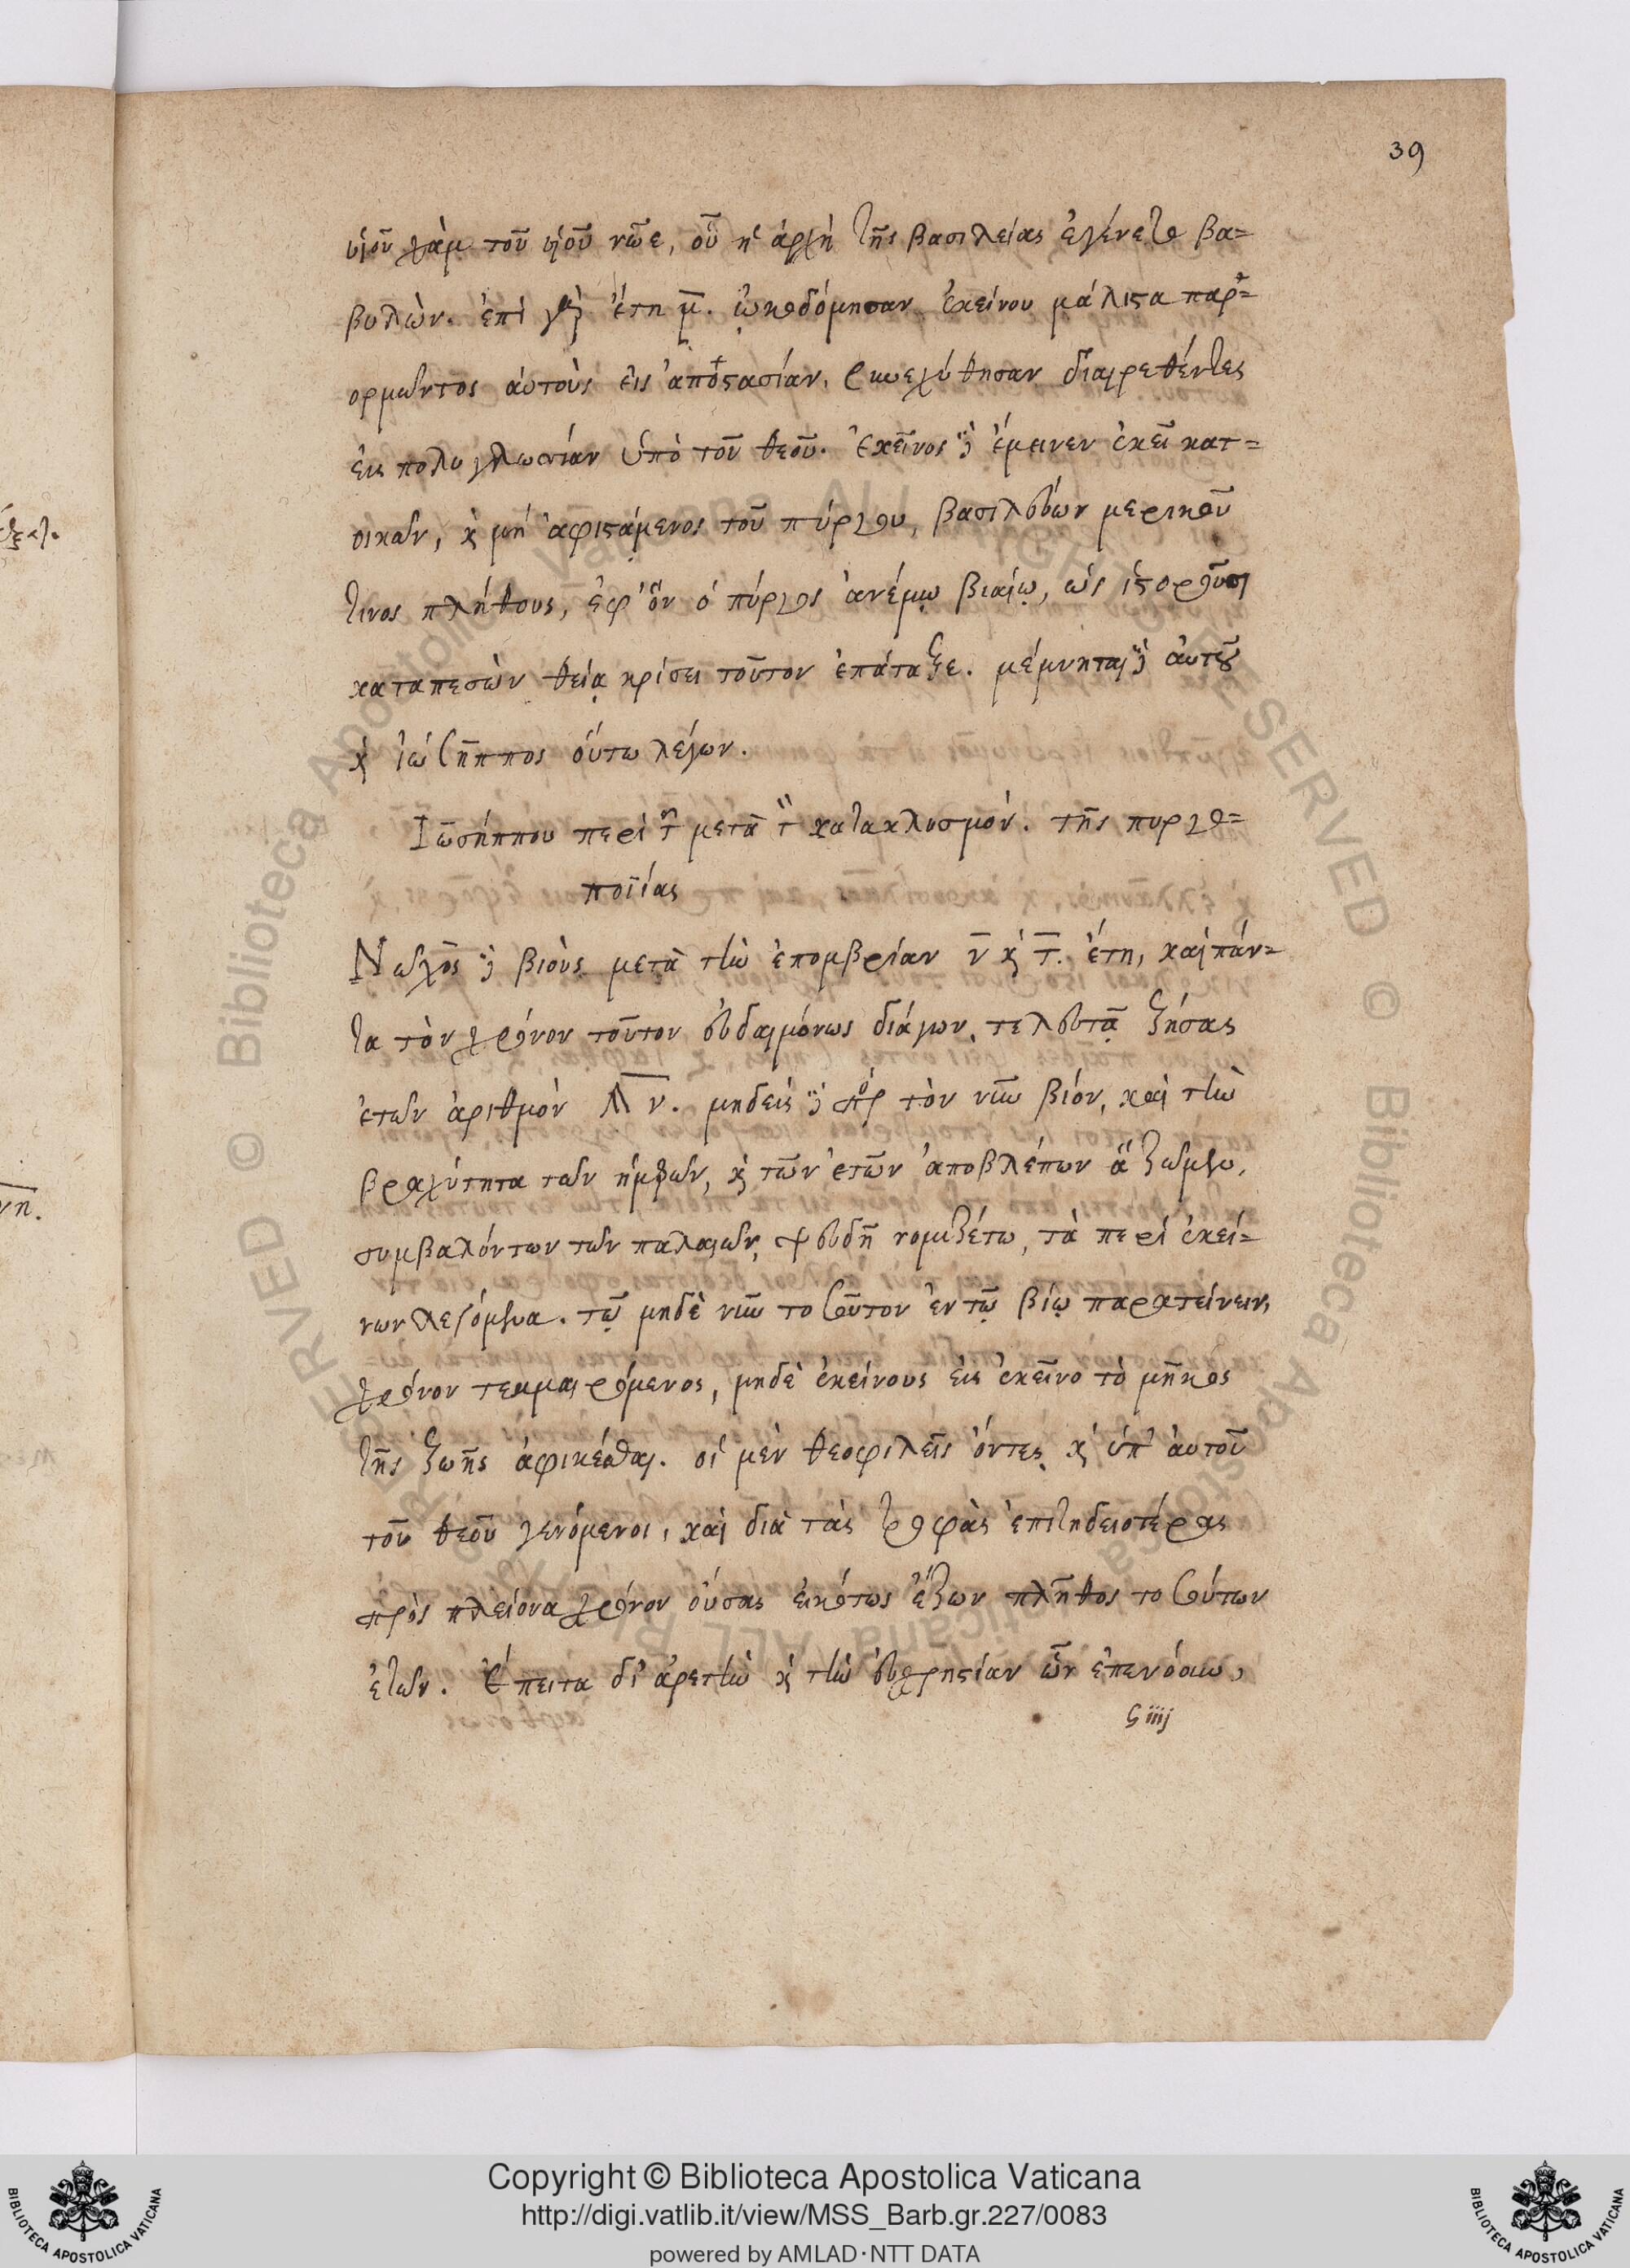 39
υἱοῦ χὰμ τοῦ υἱοῦ νῶε, οὗ ἡ ἀρχὴ τῆς βασιλείας ἐγένετο βα=
βυλών. ἐπὶ γὰρ ἔτη μ̅. ᾠκοδόμησαν ἐκείνου μάλιστα παρ=
ορμῶντος αὐτοὺς εἰς ἀποστασίαν. ἐκωλύθησαν διαιρεθέντες
εἰς πολυγλωσσίαν ὑπὸ τοῦ θεοῦ. ἐκεῖνος δὲ ἔμεινεν ἐκεῖ κατ=
οικῶν, καὶ μὴ ἀφιστάμενος τοῦ πύργου, βασιλεύων μερικοῦ
τινος πλήθους, ἐφ' ὃν ὁ πύργος ἀνέμῳ βιαίῳ, ὡς ἱστοροῦσι
καταπεσὼν θείᾳ κρίσει τοῦτον ἐπάταξε. μέμνηται δὲ αὐτοῦ
καὶ ἰώσηππος οὕτω λέγων.
Ἰωσήππου περὶ τῶν μετὰ τὸν κατακλυσμόν. τῆς πυργο=
ποιΐας
Νῶχος δὲ βιοὺς μετὰ τὴν ἐπομβρίαν ν̅ καὶ τ̅. ἔτη, καὶ πάν=
τα τὸν χρόνον τοῦτον εὐδαιμόνως διάγων, τελευτᾷ ζήσας
ἐτῶν ἀριθμὸν ϡν. μηδεὶς δὲ πρὸς τὸν νῦν βίον, καὶ τὴν
βραχύτητα τῶν ἡμερῶν, καὶ τῶν ἐτῶν ἀποβλέπων ἃ ζῶμεν,
συμβαλόντων τῶν παλαιῶν, ψευδῆ νομιζέτω, τὰ περὶ ἐκεί=
νων λεγόμενα. τῷ μηδὲ νῦν τοσοῦτον ἐν τῷ βίῳ παρατείνειν,
χρόνον τεκμαιρόμενος, μηδὲ ἐκείνους εἰς ἐκεῖνο τὸ μῆκος
τῆς ζωῆς ἀφικέσθαι. οἱ μὲν θεοφιλεῖς ὄντες, καὶ ὑπ' αὐτοῦ
τοῦ θεοῦ γενόμενοι, καὶ διὰ τὰς τροφὰς ἐπιτηδειοτέρας
πρὸς πλείονα χρόνον οὔσας εἰκότως ἔζων πλῆθος τοσούτων
ἐτῶν. ἔπειτα δι' ἀρετὴν καὶ τὴν εὐχρηστίαν ὧν ἐπενόουν,
ς iiij
Copyright © Biblioteca Apostolica Vaticana
http://digi.vatlib.it/view/MSS_Barb.gr.227/0083
powered by AMLAD·NTT DATA
BIBLIOTECA APOSTOLICA VATICANA
BIBLIOTECA APOSTOLICA VATICANA